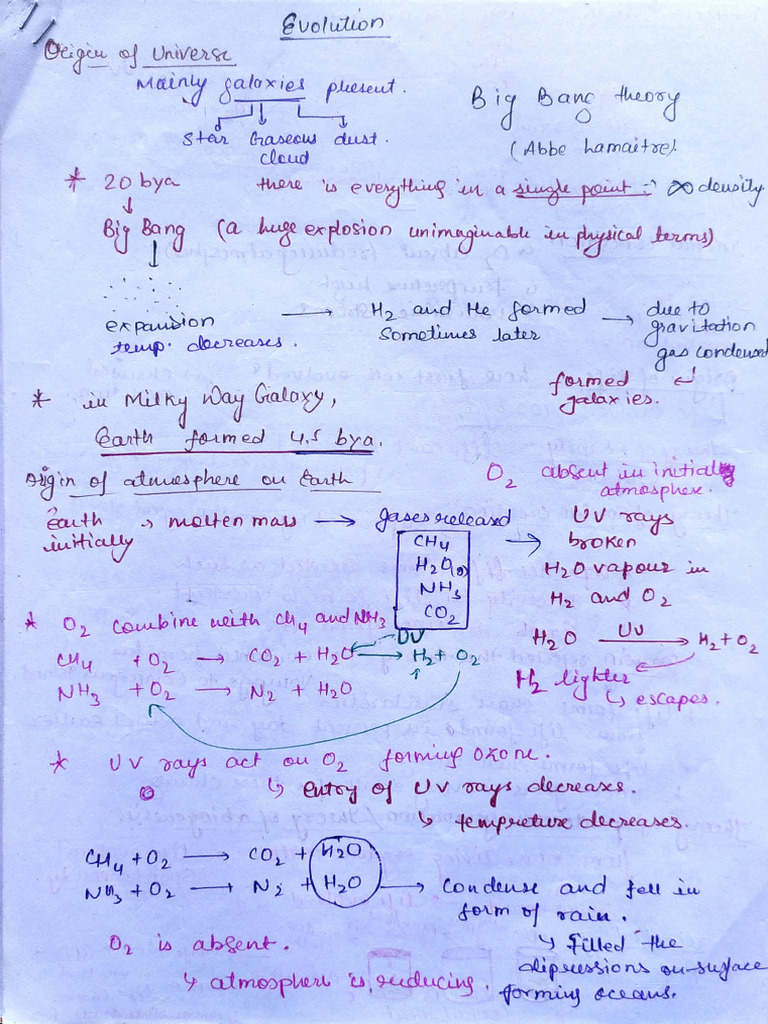 Evolution
Origin of Universe
Mainly galaxies present.
Star Gaseous cloud dust.
Big Bang theory
(Abbe Lamaitre).
* 20 bya there is everything in a single point :- ∞ density
Big Bang (a huge explosion unimaginable in physical terms)
expansion
temp. decreases.
→ H2 and He formed
Sometimes later
→ due to
gravitation
gas condensed
formed
galaxies.
* in Milky Way Galaxy,
Earth formed 4.5 bya.
Origin of atmosphere on Earth
O2 absent in initial
atmosphere.
Earth
initially
→ molten mass → gases released
CH4
H2O
NH3
CO2
→ UV rays
broken
H2O vapour in
H2 and O2
H2O UV→ H2 + O2
H2 lighter
↳ escapes.
* O2 combine with CH4 and NH3
UV
CH4 + O2 → CO2 + H2O → H2 + O2
NH3 + O2 → N2 + H2O
* UV rays act on O2 forming Ozone.
↳ entry of UV rays decreases.
↳ tempreture decreases.
CH4 + O2 → CO2 + H2O
NH3 + O2 → N2 + H2O → Condense and fell in
form of rain.
↳ Filled the
dipressions on surface
forming oceans.
O2 is absent.
↳ atmosphere is reducing.